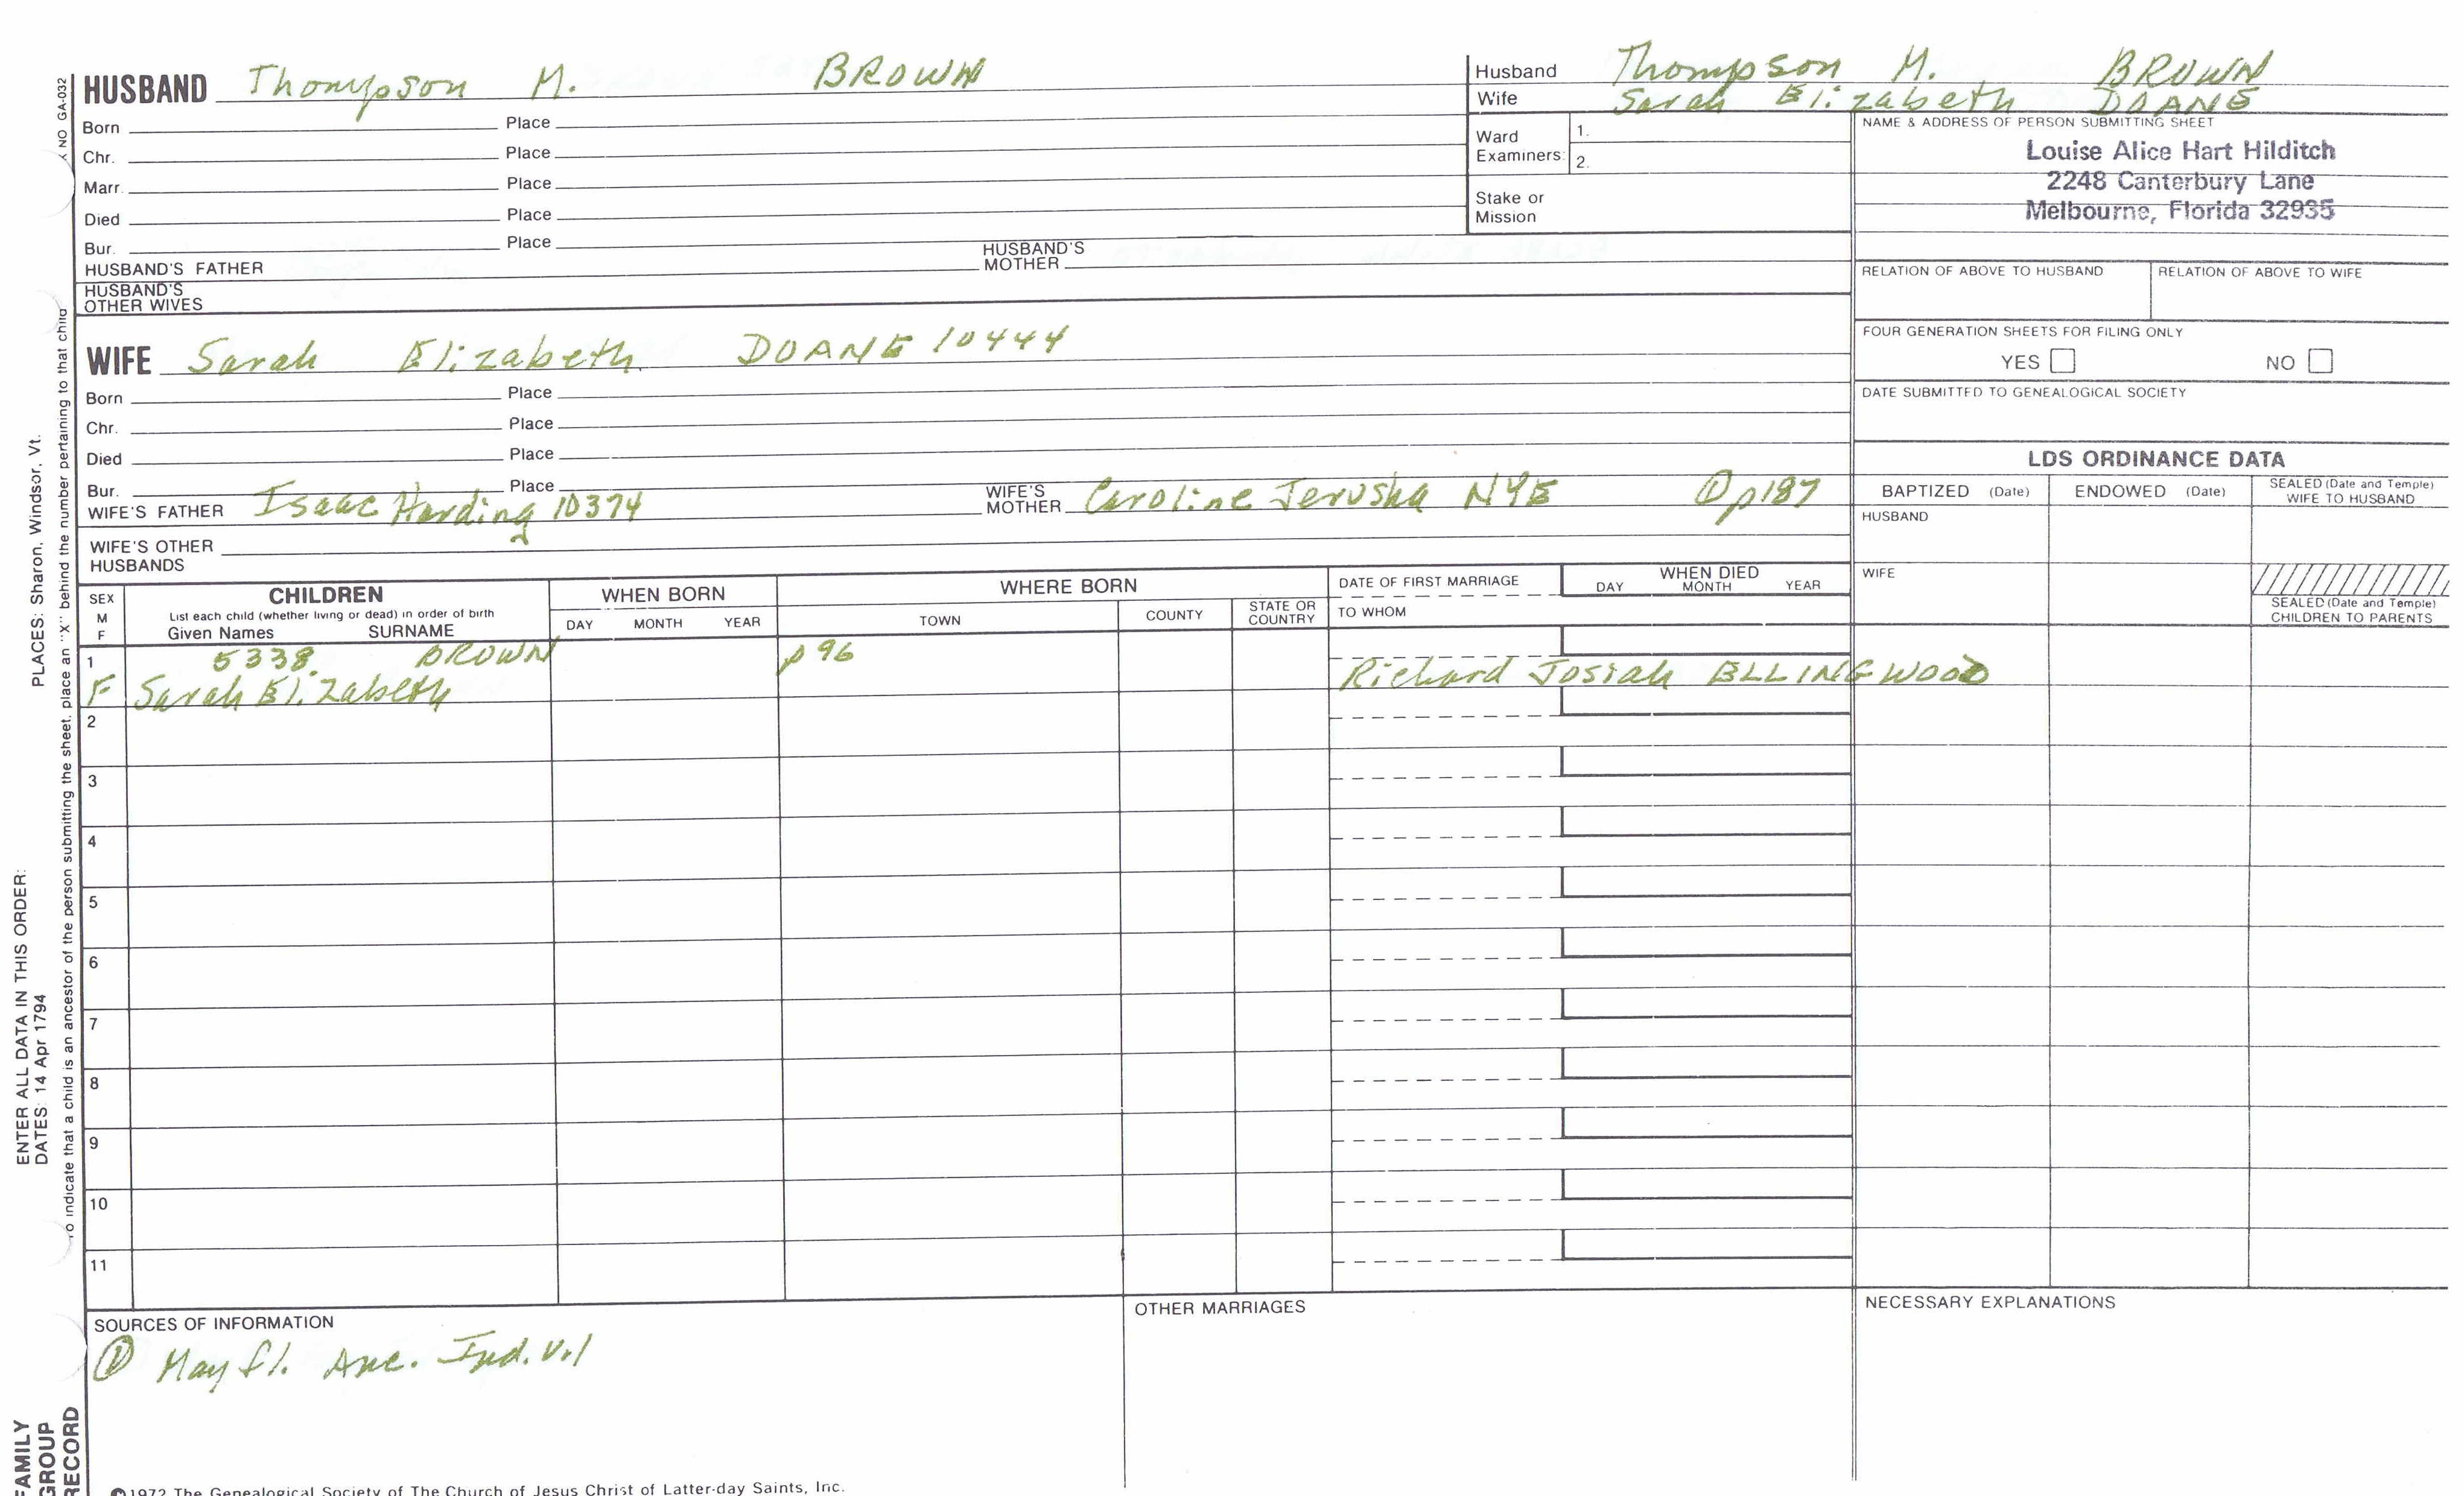 HUSBAND Thompson M. BROWN
Born Place
Chr. Place
Marr. Place
Died Place
Bur. Place
HUSBAND'S FATHER HUSBAND'S MOTHER
HUSBAND'S OTHER WIVES
Husband Thompson M. BROWN
Wife Sarah Elizabeth DOANE
Ward Examiners: 1.
2.
Stake or Mission
NAME & ADDRESS OF PERSON SUBMITTING SHEET
Louise Alice Hart Hilditch
2248 Canterbury Lane
Melbourne, Florida 32935
RELATION OF ABOVE TO HUSBAND RELATION OF ABOVE TO WIFE
FOUR GENERATION SHEETS FOR FILING ONLY
YES NO
DATE SUBMITTED TO GENEALOGICAL SOCIETY
WIFE Sarah Elizabeth DOANE 10444
Born Place
Chr. Place
Died Place
Bur. Place
WIFE'S FATHER Isaac Harding 10374 WIFE'S MOTHER Caroline Jerusha NYE ① p187
WIFE'S OTHER HUSBANDS
LDS ORDINANCE DATA
BAPTIZED (Date) ENDOWED (Date) SEALED (Date and Temple) WIFE TO HUSBAND
HUSBAND
WIFE
SEALED (Date and Temple) CHILDREN TO PARENTS
SEX M F
CHILDREN
List each child (whether living or dead) in order of birth
Given Names SURNAME
WHEN BORN
DAY MONTH YEAR
WHERE BORN
TOWN COUNTY STATE OR COUNTRY
DATE OF FIRST MARRIAGE
TO WHOM
WHEN DIED
DAY MONTH YEAR
1 5338. BROWN p 96
F Sarah Elizabeth Richard Josiah ELLINGWOOD
2
3
4
5
6
7
8
9
10
11
SOURCES OF INFORMATION
① Mayfl. Anc. Ind. V.1
OTHER MARRIAGES
NECESSARY EXPLANATIONS
©1972 The Genealogical Society of The Church of Jesus Christ of Latter-day Saints, Inc.
FAMILY
GROUP
RECORD
ENTER ALL DATA IN THIS ORDER:
DATES: 14 Apr 1794
PLACES: Sharon, Windsor, Vt.
indicate that a child is an ancestor of the person submitting the sheet, place an "X" behind the number pertaining to that child
NO GA-032